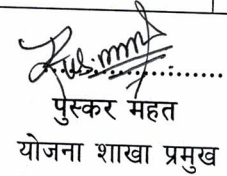 पुस्कर महत
योजना शाखा प्रमुख